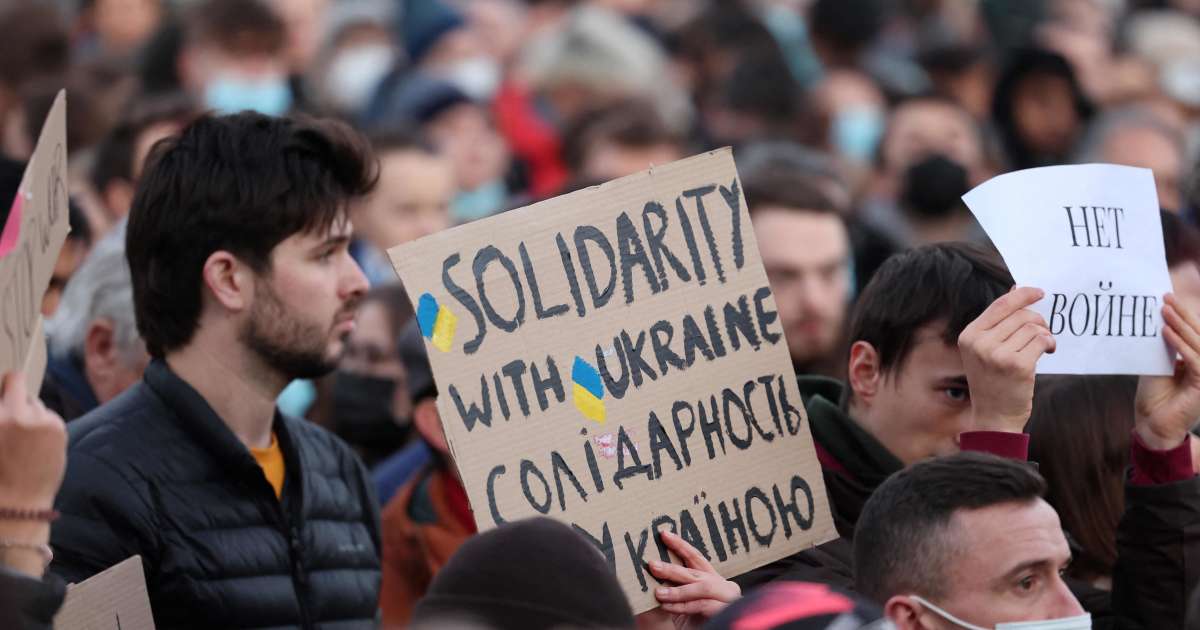 SOLIDARITY
WITH UKRAINE
СОЛІДАРНІСТЬ
УКРАЇНОЮ
НЕТ
ВОЙНЕ